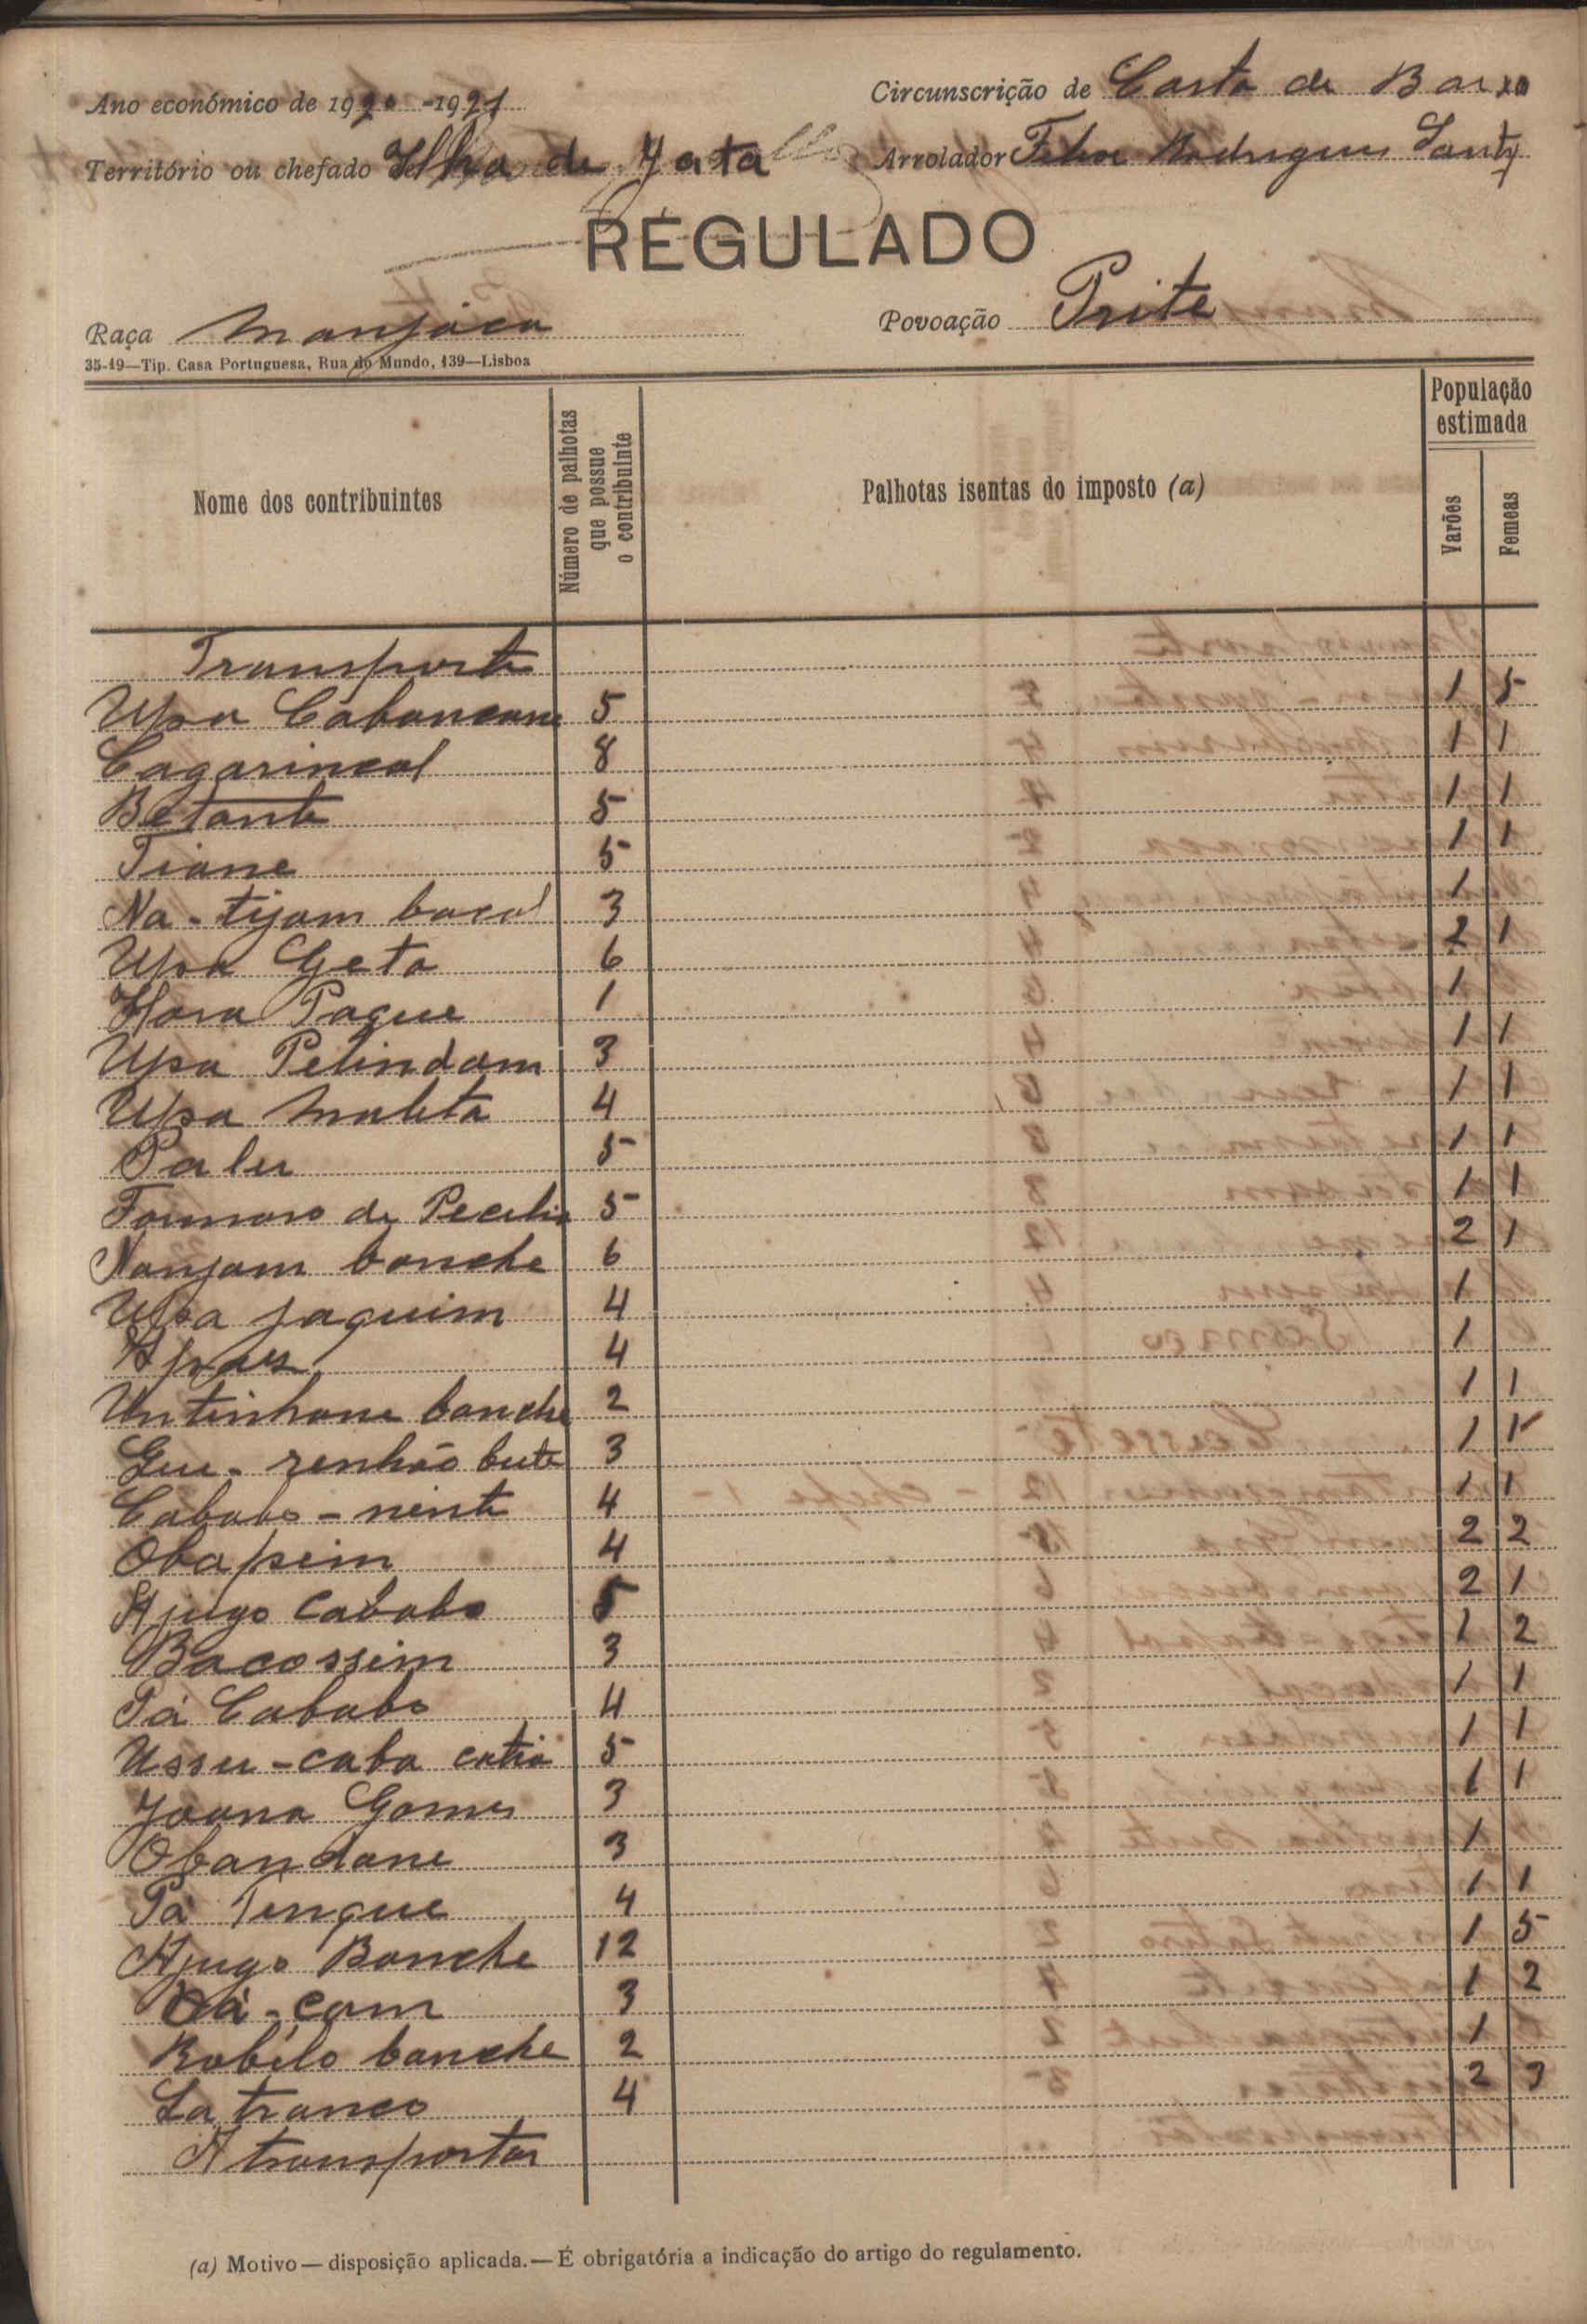 Ano económico de 1920-1921 Circunscrição de Costa de Baixo
Território ou chefado de Ilha de Jata Arrolador Rodrigues Santy
REGULADO
Raça Manjaca Povoação Prite
35-19—Tip. Casa Portuguesa, Rua do Mundo, 139—Lisboa
Nome dos contribuintes Número de palhotas que possue o contribuinte Palhotas isentas do imposto (a) População estimada Varões Femeas
Transporte
Upa Cabancane 5 1 5
Cagarincal 8 1 1
Betante 5 1 1
Tiane 5 1 1
Na-tijam bacal 3 1
Upa Geta 6 2 1
Hora Paque 1 1
Upa Pelindam 3 1 1
Upa Maleta 4 1 1
Palu 5 1 1
Formoso de Pecilia 5 1 1
Nanjam banche 6 2 1
Upa Jaquim 4 1
4 1
Untinhane banche 2 1 1
Gu-renhão bute 3 1 1
Cababo-ninte 4 1 1
Obapsim 4 2 2
Ajugo Cababo 5 2 1
Bacossim 3 1 2
Pá Cababo 4 1 1
Ussu-caba catia 5 1 1
Joana Gomes 3 1 1
Ofandane 3 1
Pá Tengue 4 1 1
Ajugo Banche 12 1 5
-cam 3 1 2
Robélo banche 2 1
La tranco 4 2 3
A transportar
(a) Motivo—disposição aplicada.—É obrigatória a indicação do artigo do regulamento.